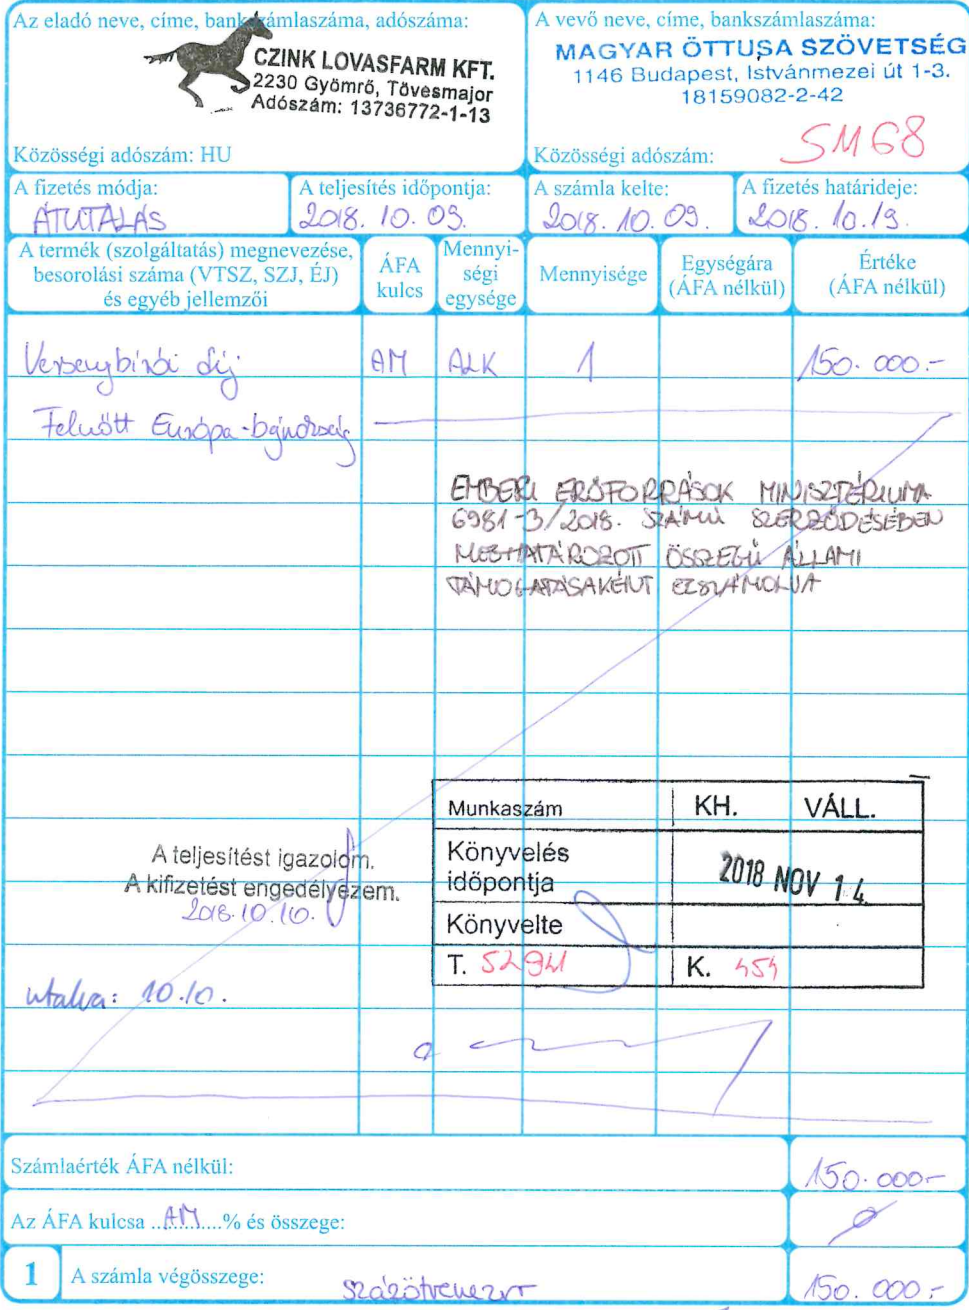 Az eladó neve, címe, bankszámlaszáma, adószáma:
CZINK LOVASFARM KFT.
2230 Gyömrő, Tövesmajor
Adószám: 13736772-1-13
Közösségi adószám: HU
A vevő neve, címe, bankszámlaszáma:
MAGYAR ÖTTUSA SZÖVETSÉG
1146 Budapest, Istvánmezei út 1-3.
18159082-2-42
SM68
Közösségi adószám:
A fizetés módja:
ÁTUTALÁS
A teljesítés időpontja:
2018. 10. 09.
A számla kelte:
2018. 10. 09.
A fizetés határideje:
2018. 10. 19.
A termék (szolgáltatás) megnevezése,
besorolási száma (VTSZ, SZJ, ÉJ)
és egyéb jellemzői
ÁFA
kulcs
Mennyi-
ségi
egysége
Mennyisége
Egységára
(ÁFA nélkül)
Értéke
(ÁFA nélkül)
Versenybírói díj AM ALK 1 150.000.-
Felnőtt Európa-bajnokság
EMBERI ERŐFORRÁSOK MINISZTÉRIUMA
6981-3/2018. SZÁMÚ SZERZŐDÉSÉBEN
MEGHATÁROZOTT ÖSSZEGŰ ÁLLAMI
TÁMOGATÁSAKÉNT ELSZÁMOLVA
Munkaszám KH. VÁLL.
Könyvelés
időpontja
2018 NOV 14.
Könyvelte
T. 52941 K. 454
A teljesítést igazolom.
A kifizetést engedélyezem.
2018.10.10.
utalva: 10.10.
Számlaérték ÁFA nélkül: 150.000-
Az ÁFA kulcsa ..AM......% és összege: 0
1 A számla végösszege: Százötvenezer 150.000.-